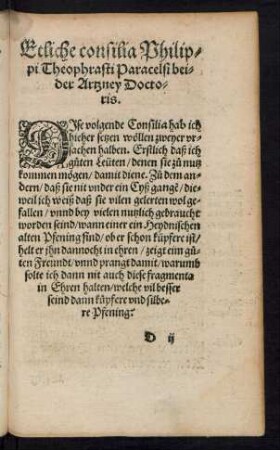 Etliche consilia Philip-
pi Theophrasti Paracelsi bei-
der Artzney Docto-
ris.
DIse volgende Consilia hab ich
hieher setzen wöllen zweyer vr-
sachen halben. Erstlich daß ich
gůten Leüten/ denen sie zů nutz
kommen mögen/ damit diene. Zů dem an-
dern/ daß sie nit vnder ein Cyß gangē/ die-
weil ich weiß daß sie vilen gelerten wol ge-
fallen/ vnnd bey vielen nutzlich gebraucht
worden seind/ wann einer ein Heydnischen
alten Pfening find/ ob er schon küpfere ist/
helt er jhn dannocht in ehren/ zeigt ein gů-
ten Freundt/ vnnd prangt damit/ warumb
solte ich dann nit auch diese fragmenta
in Ehren halten/ welche vil besser
seind dann küpfere vnd silbe-
re Pfening?
D ij